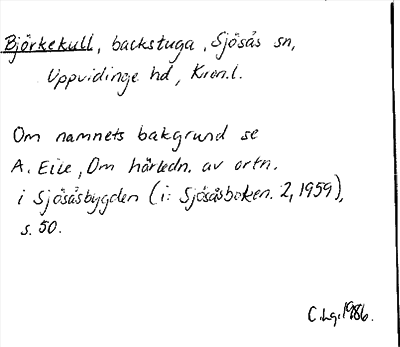 Björkekull, backstuga, Sjösås sn,
Uppvidinge hd, Kron.l.
Om namnets bakgrund se
A. Eile, Om härledn. av ortn.
i Sjösåsbygden (i: Sjösåsboken. 2, 1959),
s. 50.
C.Lg. 1986.